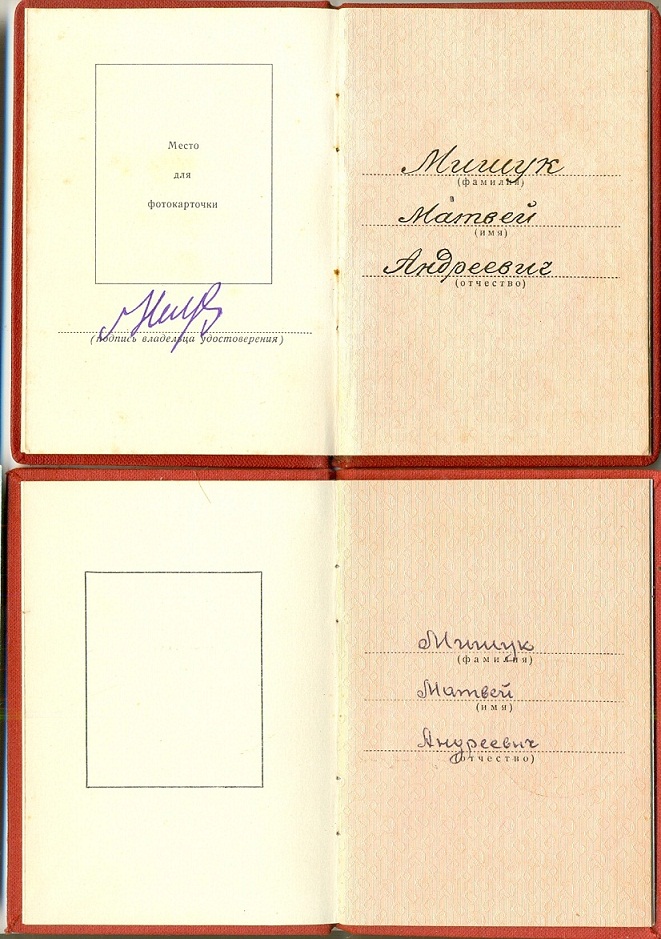 Место
для
фотокарточки
(подпись владельца удостоверения)
Мишук
(фамилия)
Матвей
(имя)
Андреевич
(отчество)
Мишук
(фамилия)
Матвей
(имя)
Андреевич
(отчество)